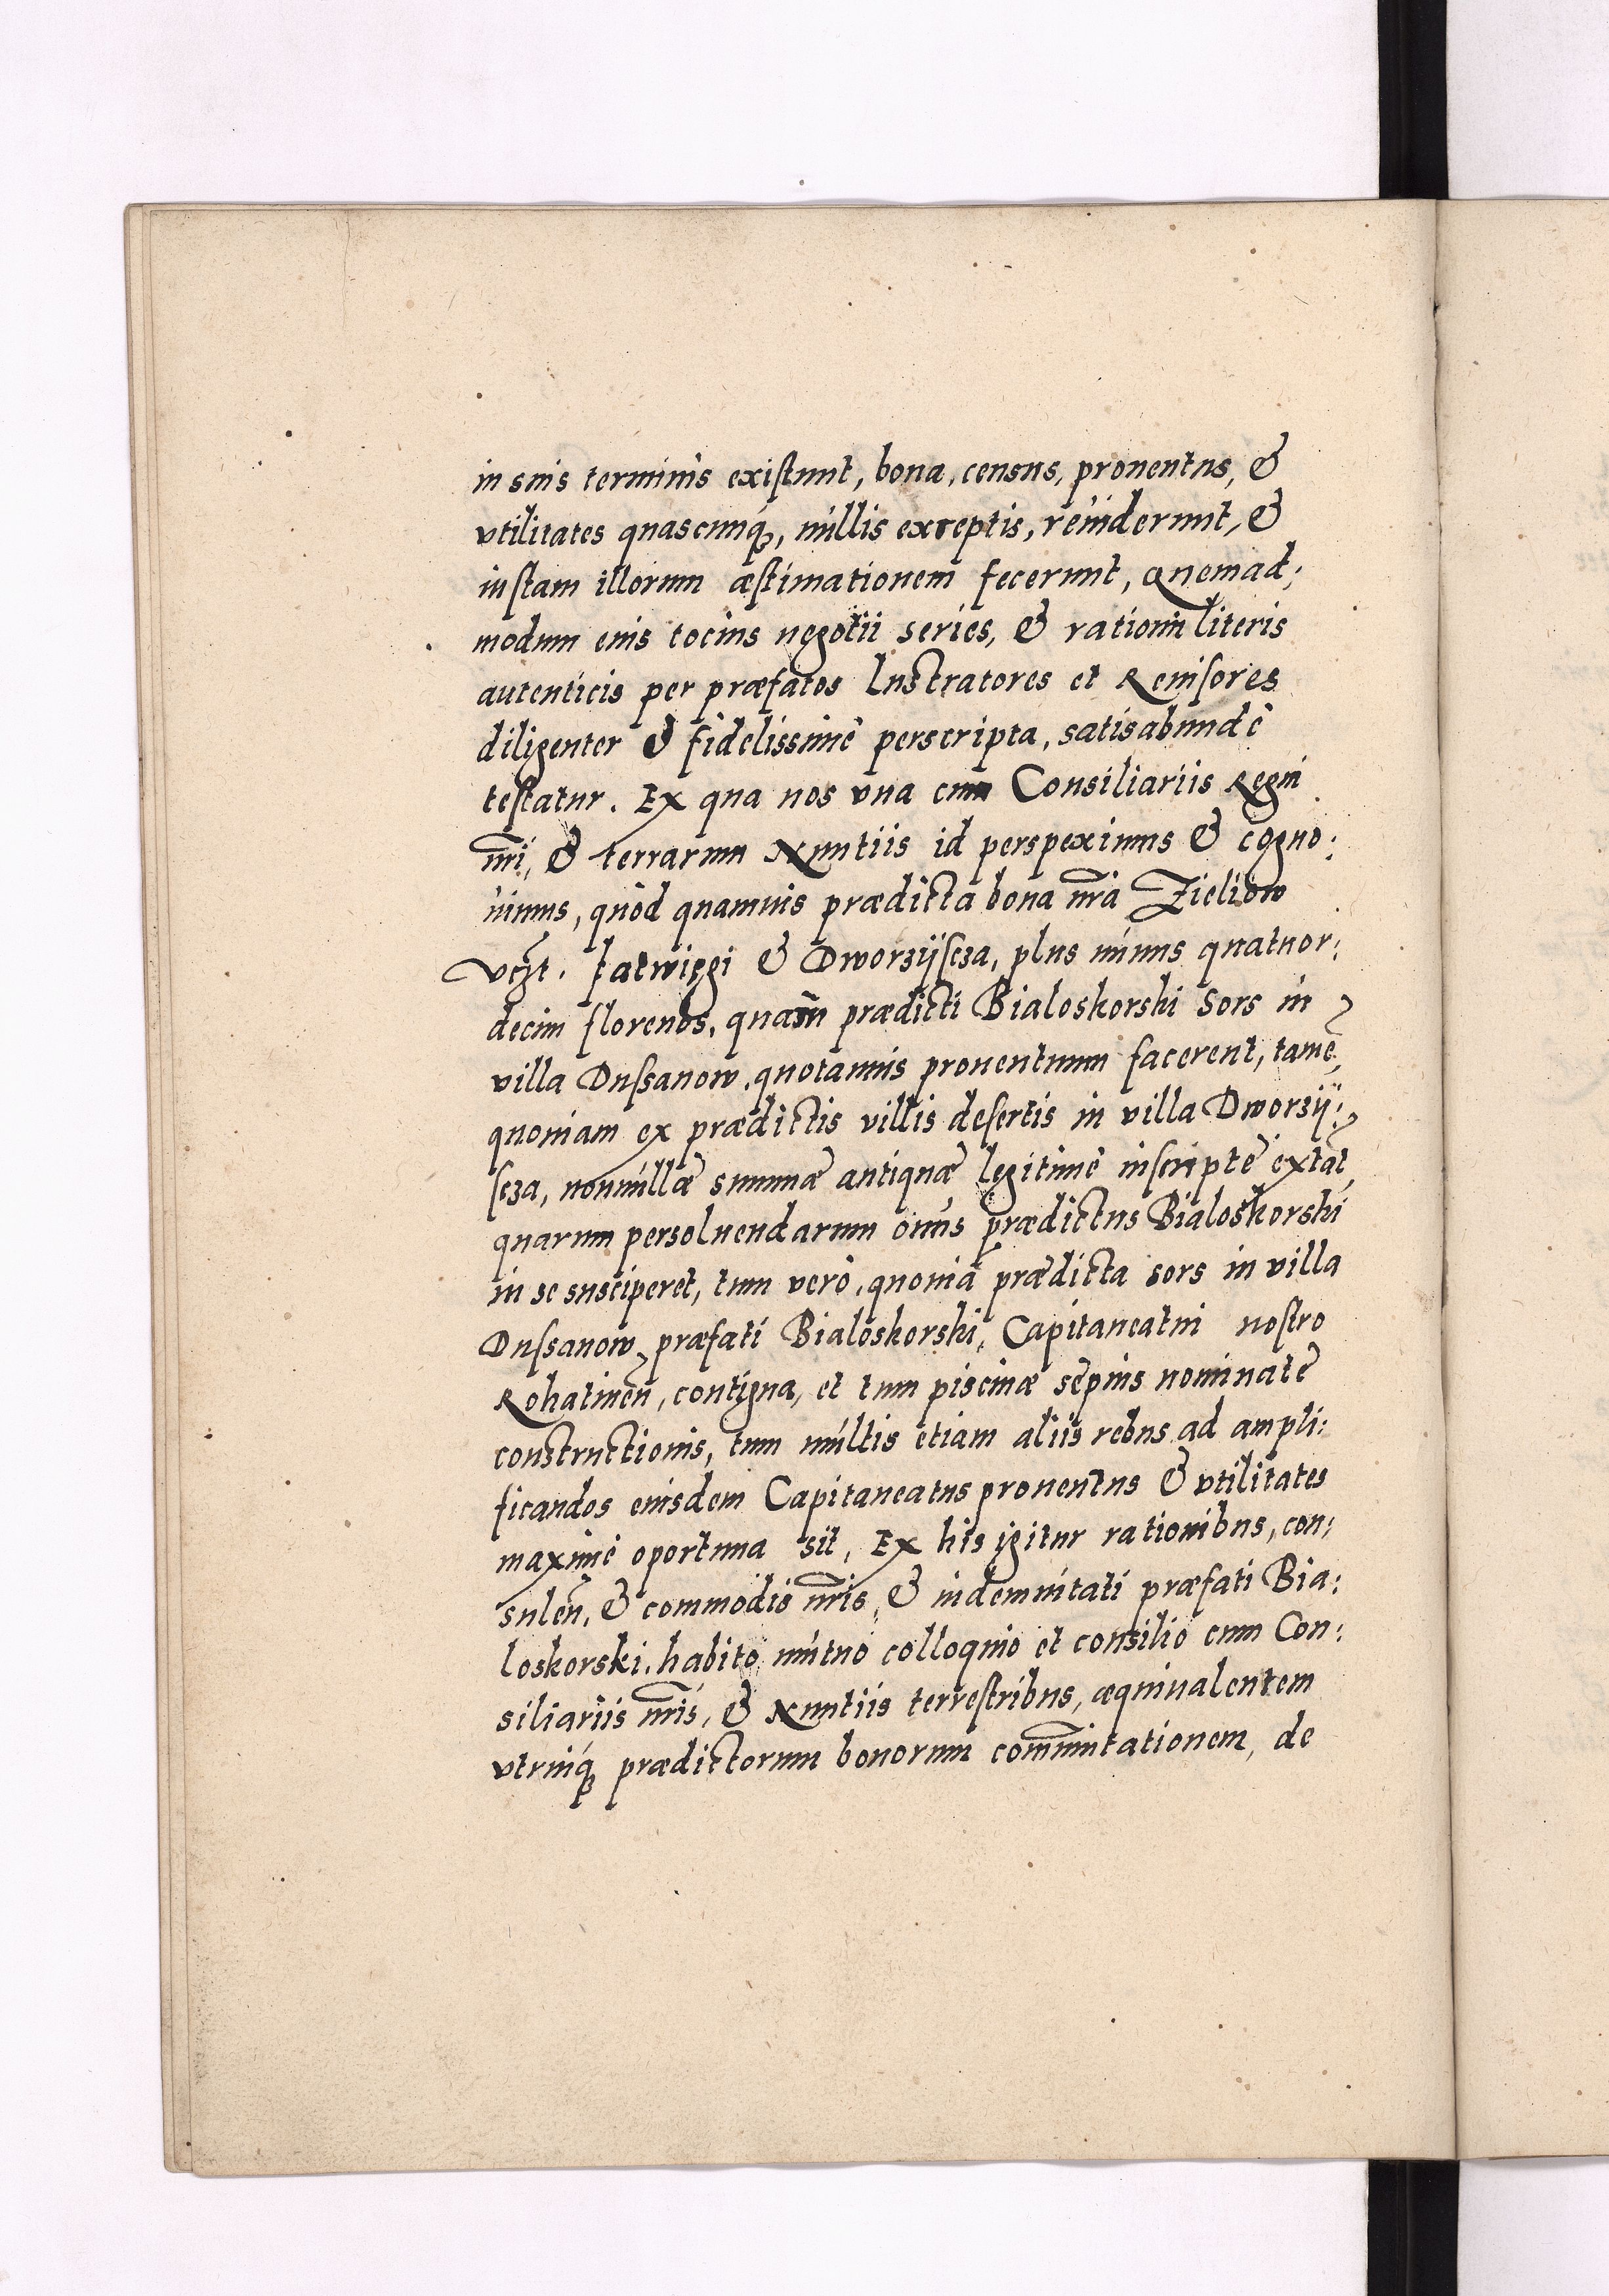 in suis terminis existunt, bona, census, prouentus, &
vtilitates quascunq3, nullis exceptis, reuiderunt, &
iustam illorum æstimationem fecerunt, Quemad:
modum eius tocius negotii series, & rationū literis
autenticis per præfatos Lustratores et Reuisores
diligenter & fidelissimè perscripta, satisabundè
testatur. Ex qua nos vna cum Consiliariis Regni
nri, & terrarum Nuntiis id perspeximus & cogno:
uimus, quòd quamuis prædicta bona nra Zieliow
vczt. Jatwięgi & Dworzÿscza, plus minus quatuor:
decim florenos, quam prædicti Bialoskorski Sors in
villa Dussanow, quotannis prouentuum facerent, tamē,
quoniam ex prædictis villis desertis in villa Dworzÿ:
scza, nonnullæ summæ antiquæ legitimè inscriptę extāt,
quarum persoluendarum onus prædictus Bialoskorski
in se susciperet, tum verò, quoniā prædicta sors in villa
Dussanow, præfati Bialoskorski, Capitaneatui nostro
Rohatineñ, contigua, et tum piscinæ sępius nominatę
constructionis, tum multis etiam aliis rebus ad ampli:
ficandos eiusdem Capitaneatus prouentus & vtilitates
maximè oportuna sit, Ex his igitur rationibus, con:
suleñ, & commodis nris, & indemnitati præfati Bia:
loskorski, habito mutuo colloquio et consilio cum Con:
siliariis nris, & Nuntiis terrestribus, æquiualentem
vtrinq3 prædictorum bonorum commutationem, de